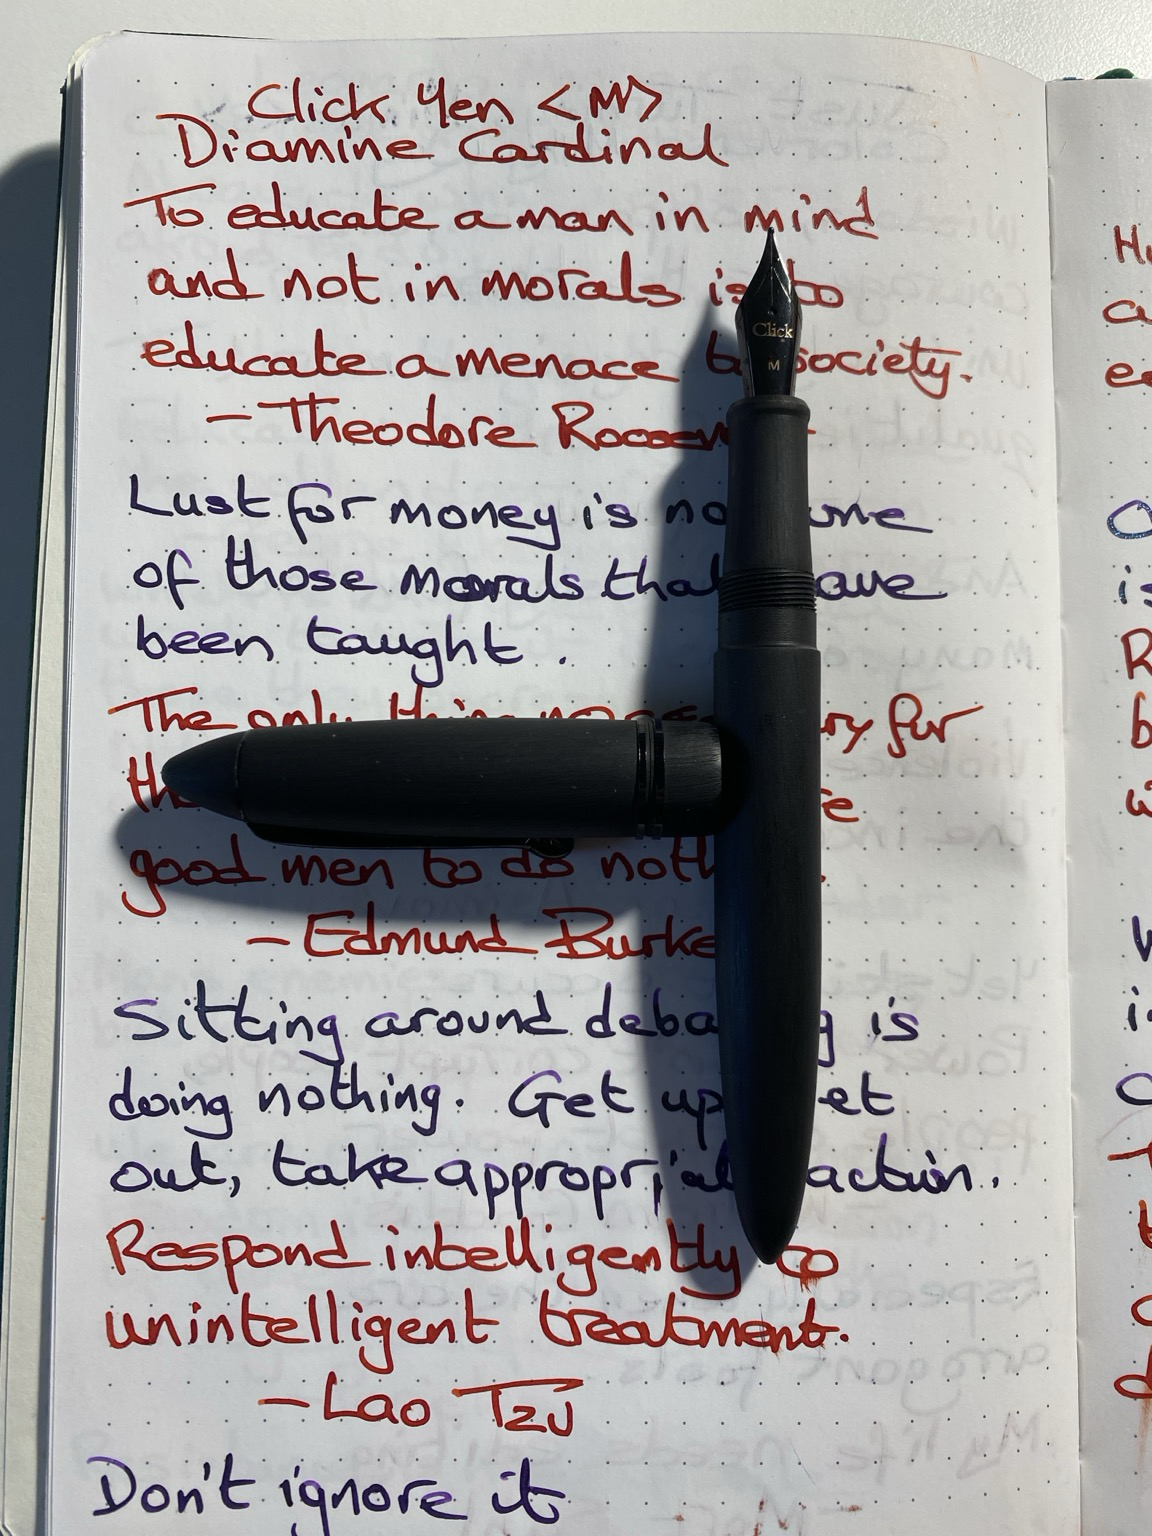 Click Yen <M>
Diamine Cardinal
To educate a man in mind
and not in morals is to
educate a menace to society.
- Theodore
Lust for money is
of those morals
been taught.
The only for
good men to do
- Edmund Burke
Sitting around is
doing nothing. Get up
out, take action.
Respond intelligently to
unintelligent treatment.
- Lao Tzu
Don't ignore it
Click
M